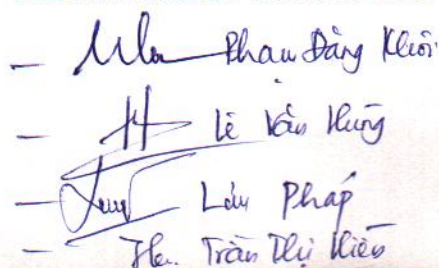 - Phan Đăng Khôi
- Lê Văn Hưng
- Lâm Pháp
- Trần Thị Hiền